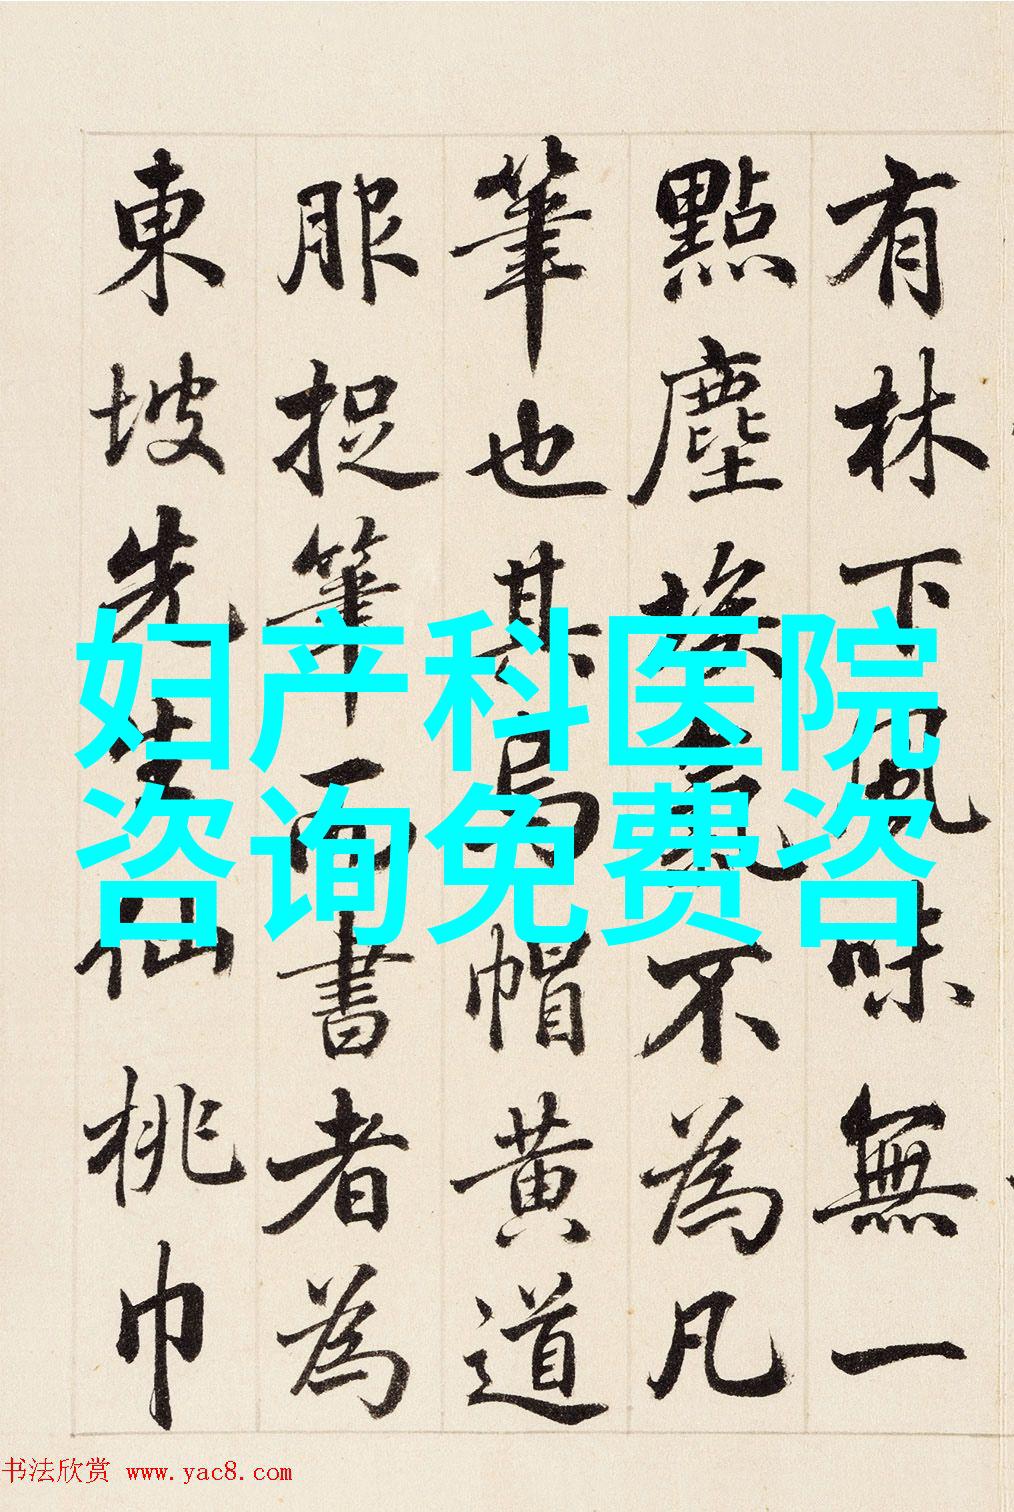 有林下風味無一
點塵埃氣不為凡
筆也其烏帽黃道
服捉筆而書者為
東坡先生仙桃巾
妇产科医院
咨询免费咨
书法欣赏 www.yac8.com